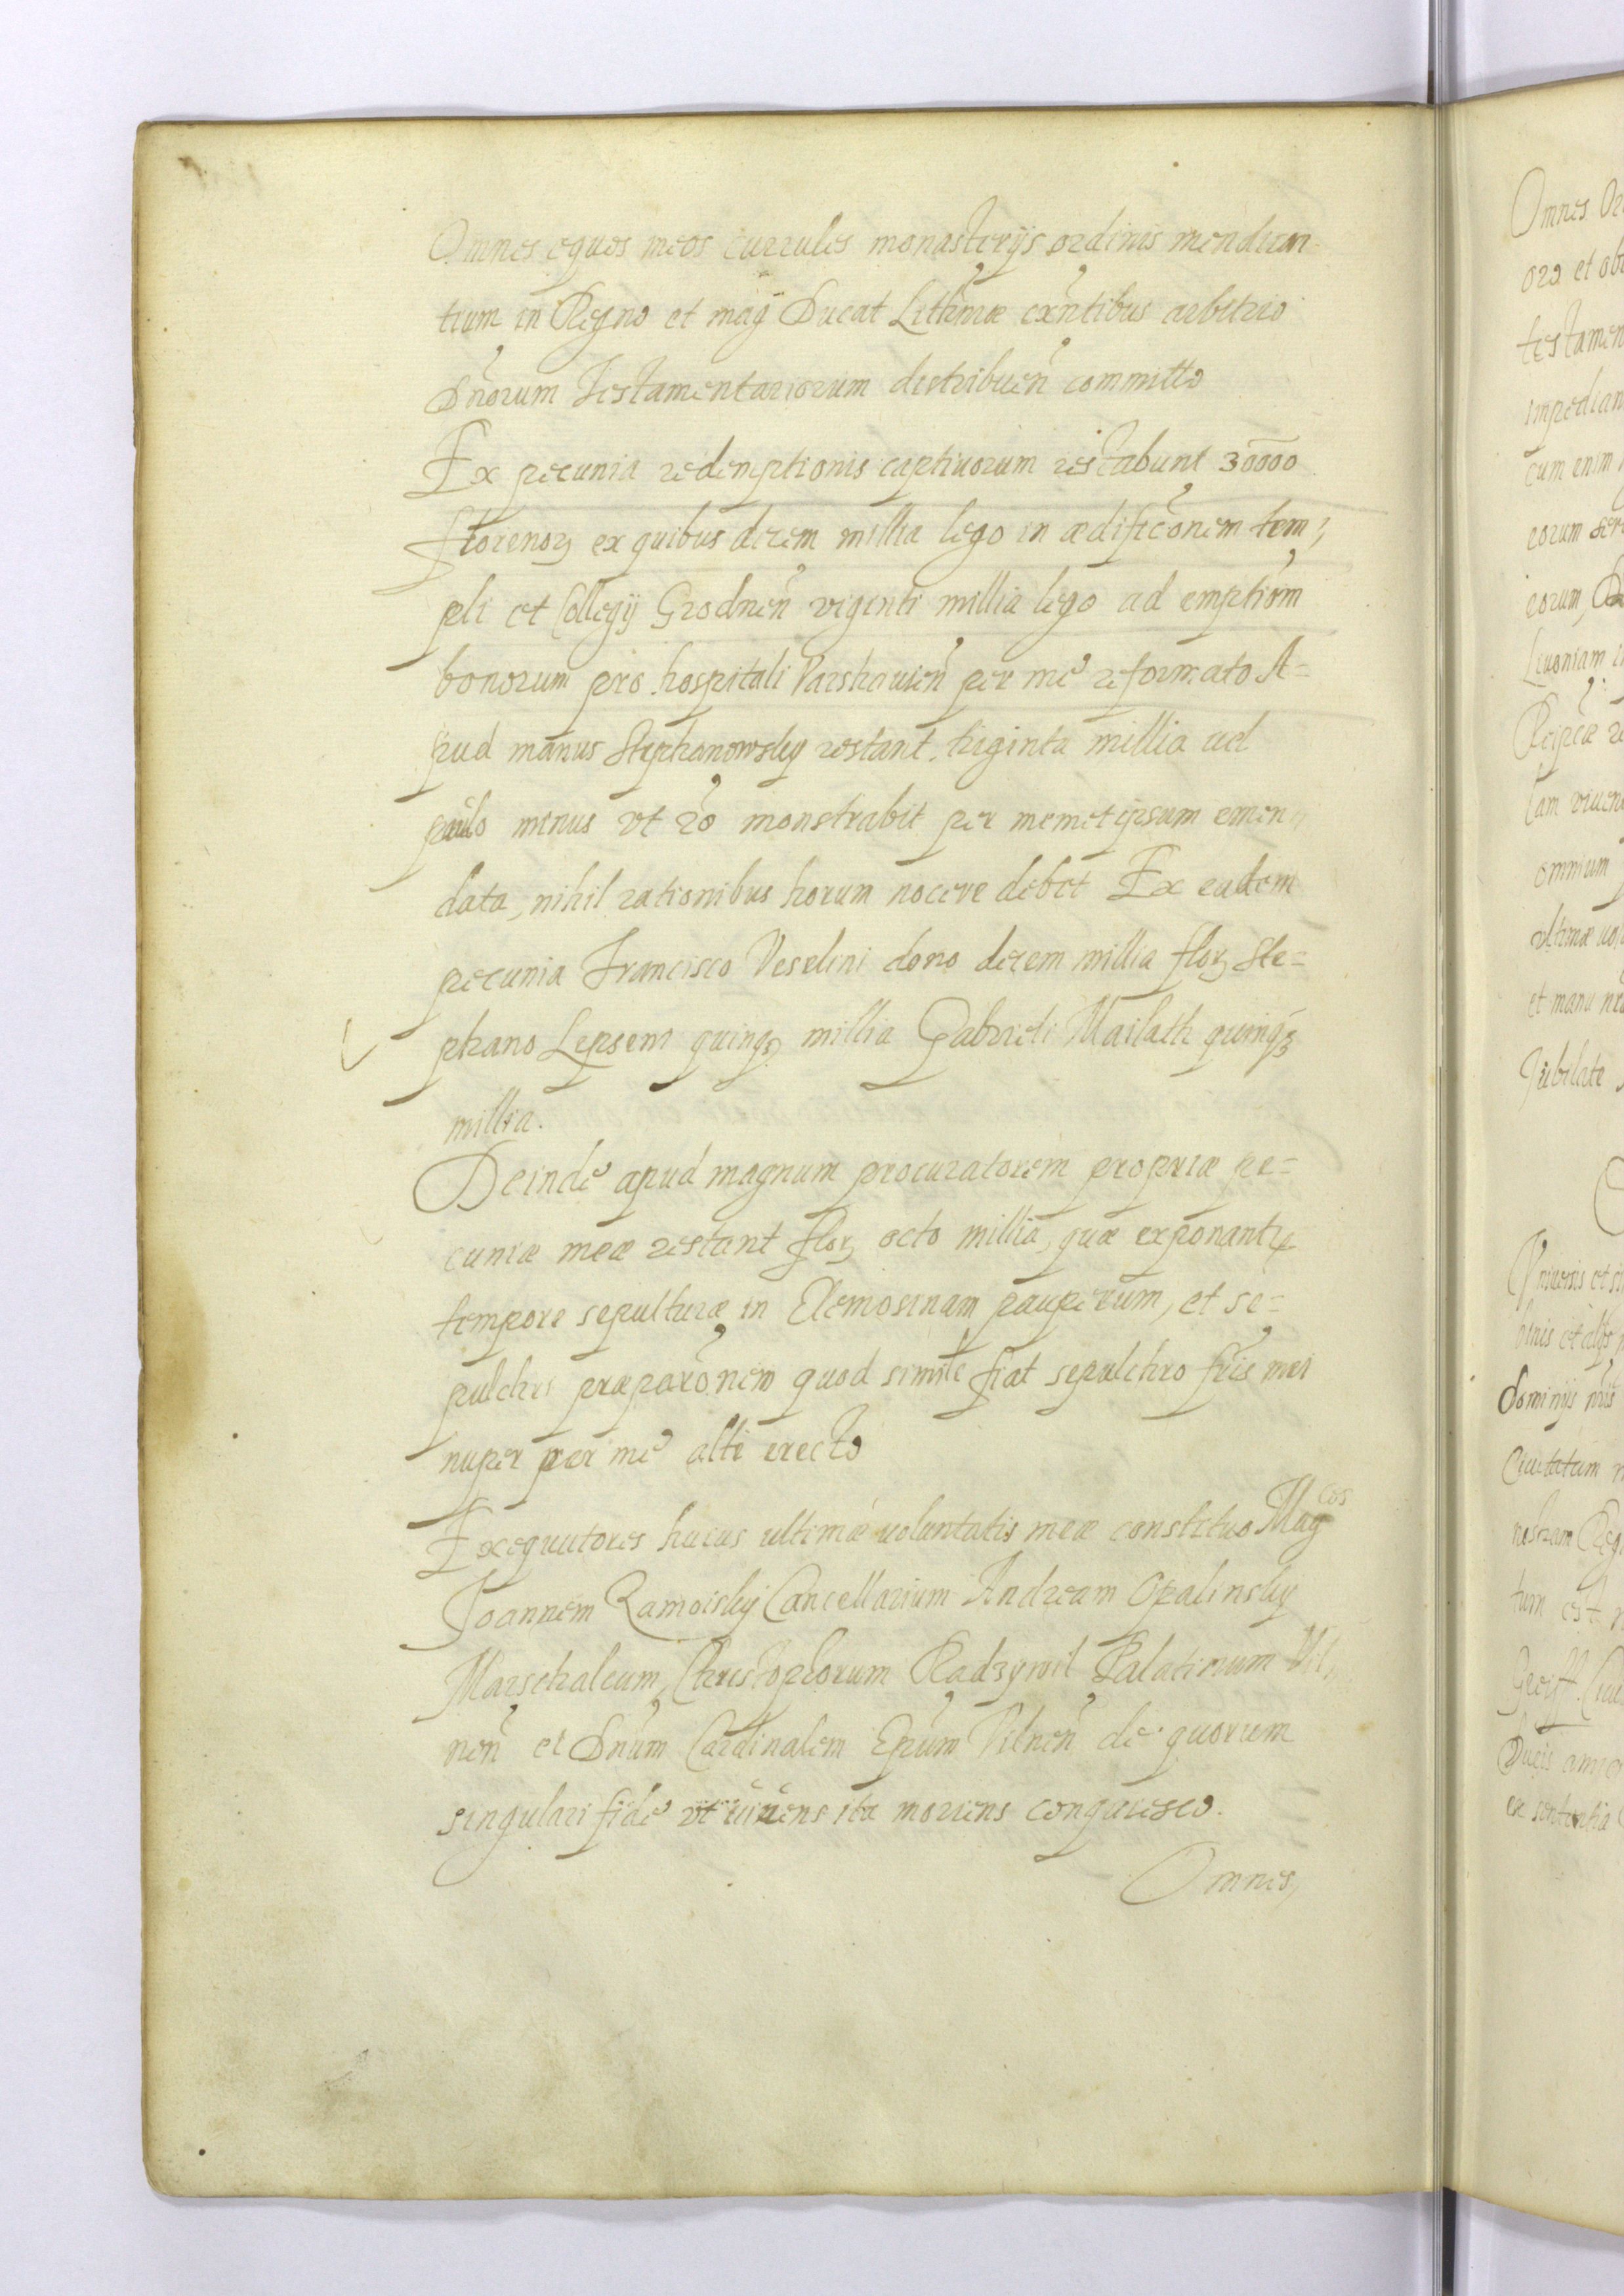 Omnes equos meos currules monasterijs ordinis mendican
tium in Regno et mag Ducat Lithuae exñtibus arbitrio
Dñorum Testamentariorum distribueñ committo
Ex pecunia redemptionis captiuorum restabunt 30000
florenoꝝ ex quibus decem millia lego in ædificõnem tem,
pli et Collegij Grodneñ viginti millia lego ad emptiõm
bonorum pro hospitali Varshauieñ per me reformato A=
pud manus Stephanowsky restant triginta millia uel
paulo minus vt rõ monstrabit per memet ipsum emen
data, nihil rationibus horum nocere debet Ex eadem
pecunia Francisco Veselini dono decem millia floꝝ Ste=
phano Lepseni quinqꝫ millia Gabrieli Mailath quinqꝫ
millia.
Deinde apud magnum procuratorem propriæ pe=
cuniæ meæ restant floꝝ octo millia, quæ exponantr
tempore sepulturæ in Elemosinam pauperum, et se=
pulchri præparõnem quod simile fiat sepulchro fr̃is mei
nuper per me alte erecto
Exequutores huius ultimæ uoluntatis meæ constituo Magcos
Joannem Zamoisky Cancellarium Andream Opalinsky
Marschalcum, Christophorum Radzywil Palatinum Vil,
neñ et Dñum Cardinalem Ep̃um Vilneñ de quorum
singulari fide vt uiuens ita moriens conquiesco.
Omnes,
Omnes
oro et ob
testamen
impedian
cum enim
eorum
eorum,
Liuoniam
Reipcæ
tam viuen
omnium
ultimæ uol
et manu
Jubilate
dominijs
Ciuitatum
nostram Reg
tum est
Ducis amic
ex sententia